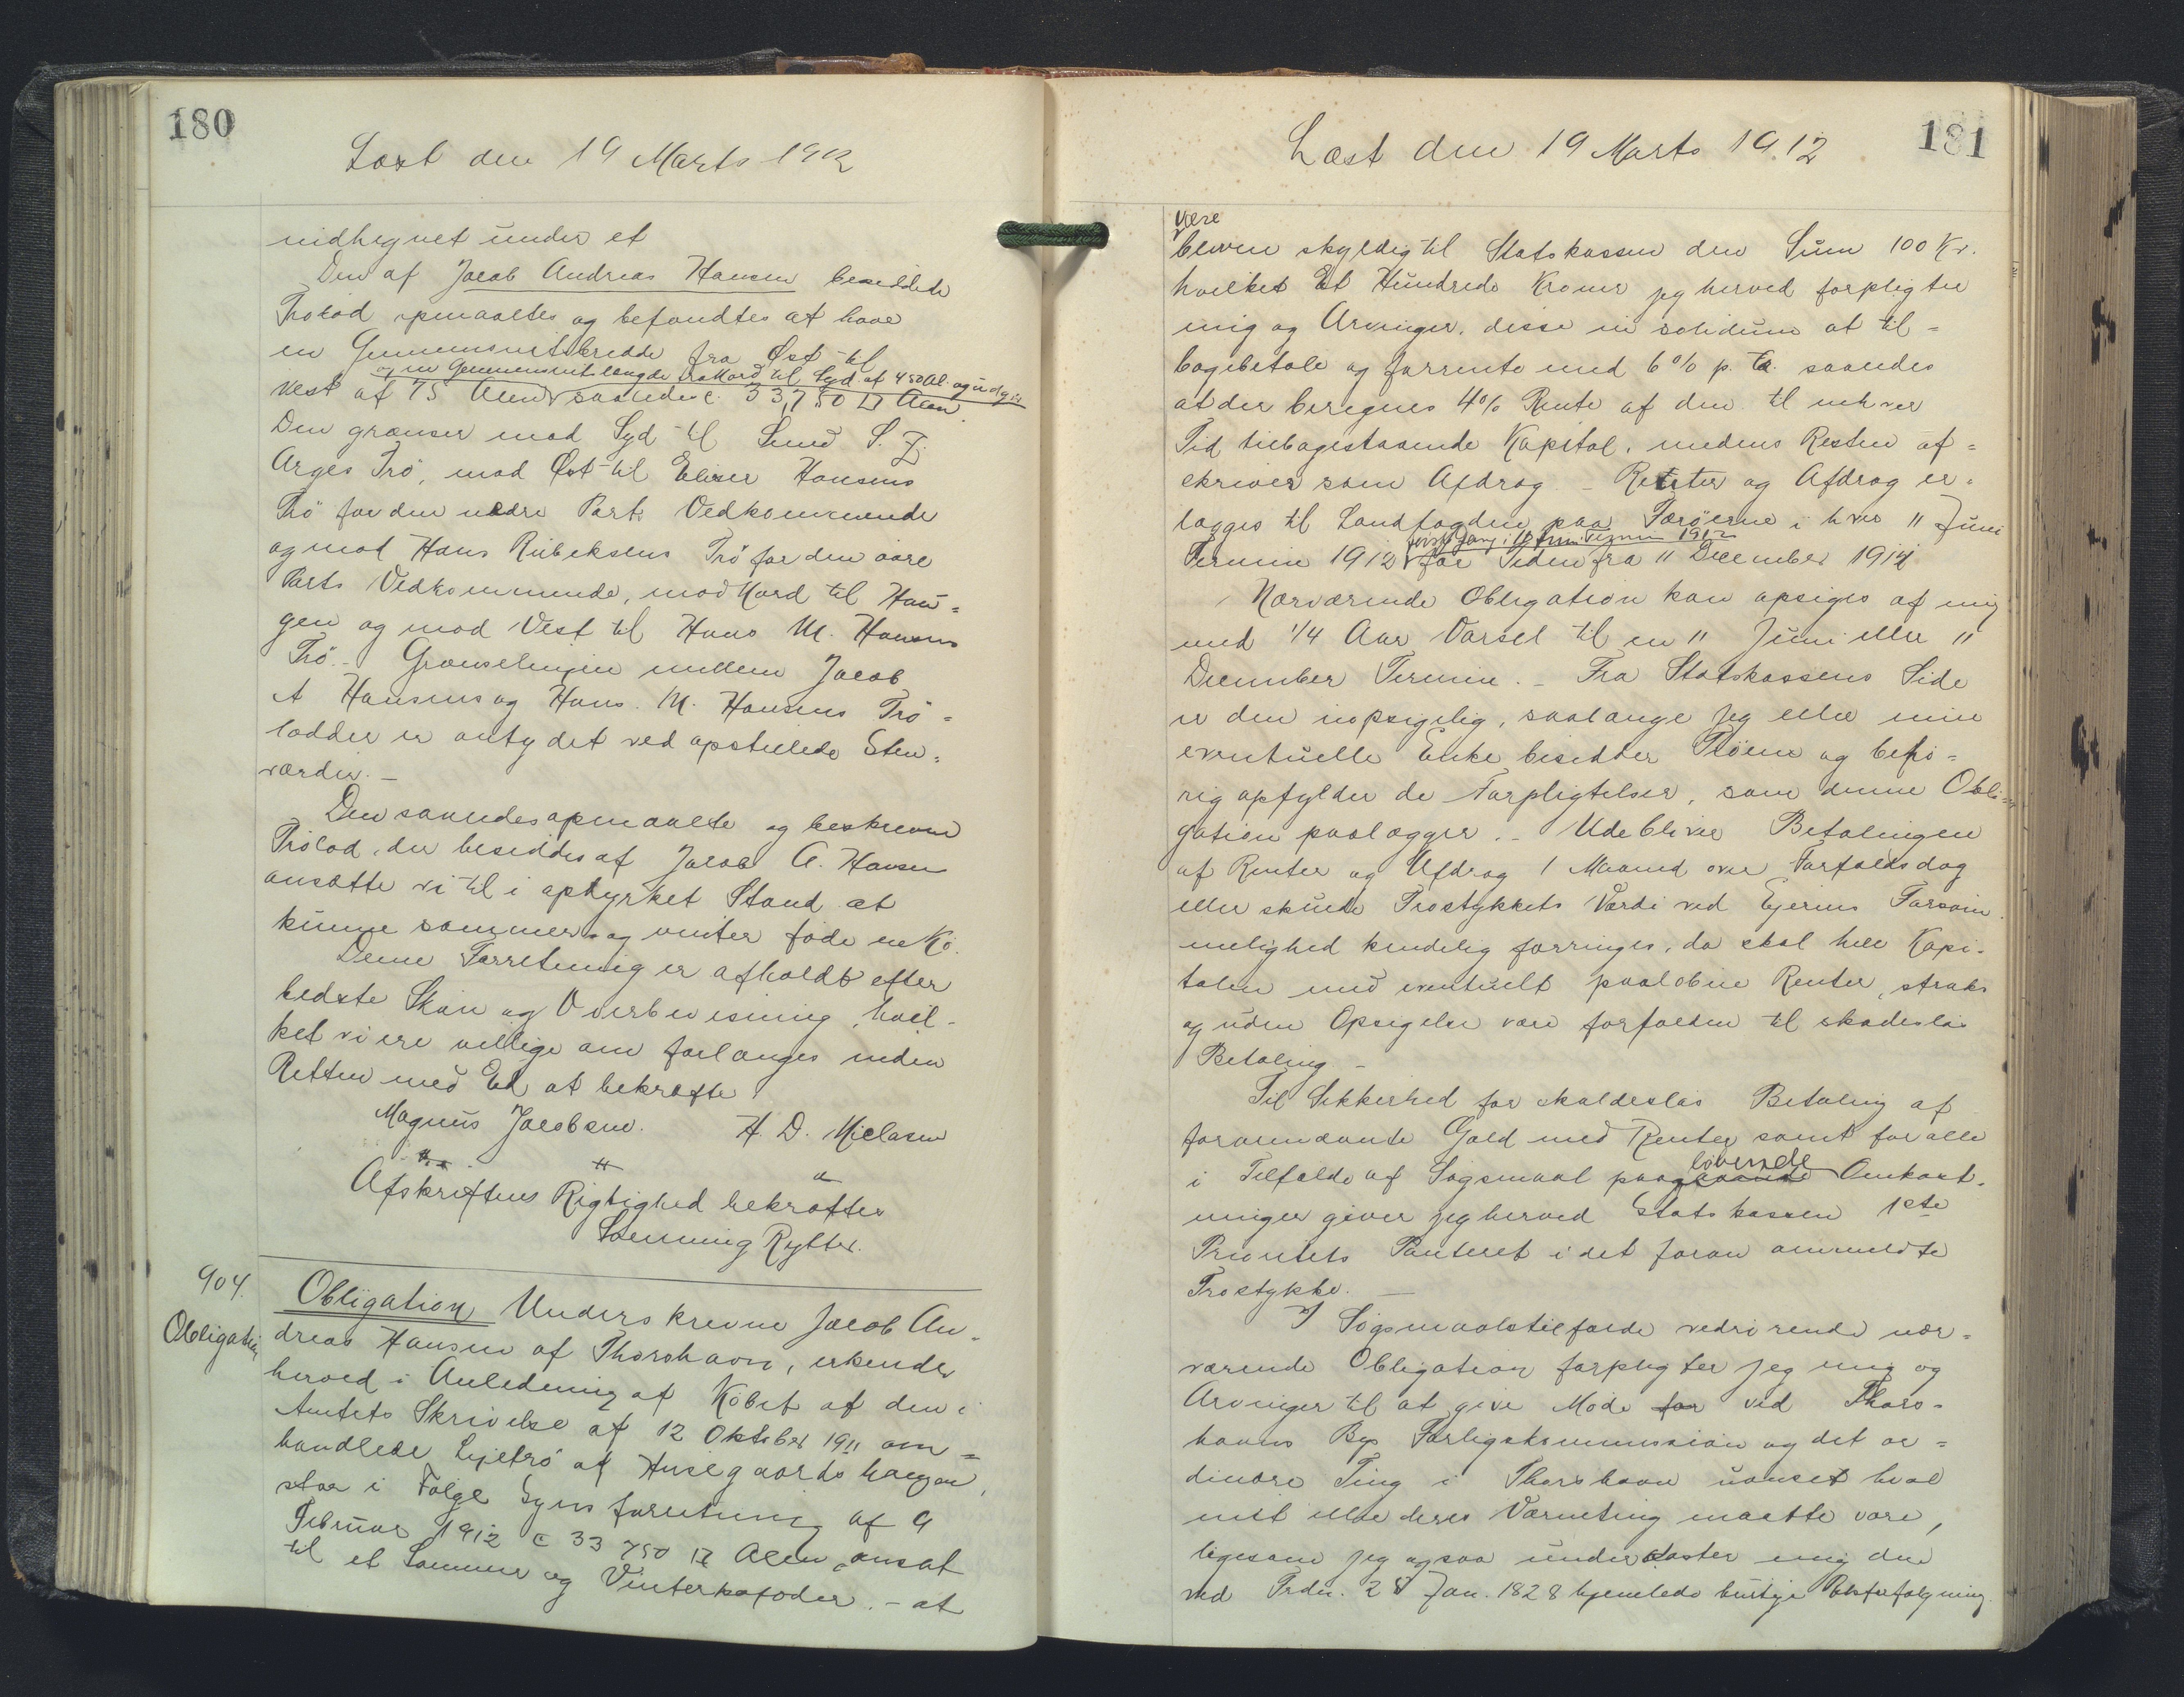 180
Læst den 19 Marts 1912
nidhegnet under et
Den af Jacob Andreas Hansen besiddede
Trölod opmaaltes og befandtes at have
en Gennemsnitsbredde fra Øst til
og en Gennemsnitlængde fra Nord til Syd af 450 Al. og udgør
Vest af 75 Alen saaledes c. 33,750 □ Alen
Den grænser mod Syd til Sund S. Z.
Arges Trö, mod Øst til Elieser Hansens
Trö for den nedre Parts Vedkommende
og mod Hans Rubeksens Trö for den øvre
Parts Vedkommende, mod Nord til Hau=
gen og mod Vest til Hans M. Hansens
Trö. - Grænselinjen mellem Jacob
A Hansens og Hans. M. Hansens Trö=
lodder er antydet ved opstillede Sten=
varder. -
Den saaledes opmaalte og beskrevne
Trölod, der besiddes af Jacob A. Hansen
ansætte vi til i opdyrket Stand at
kunne sommer og vinter föde en Ko.
Denne Forretning er afholdt efter
bedste Skön og Overbevisning, hvil-
ket vi ere villige om forlanges inden
Retten med Ed at bekræfte
Magnus Jacobsen. H. D. Niclasen
Afskriftens Rigtighed bekræftes
Flemming Rytter.
904.
Obligation
Obligation Underskrevne Jacob An=
dreas Hansen af Thorshavn, erkender
herved i Anledning af Köbet af den i
Amtets Skrivelse af 12 Oktober 1911 om=
handlede Lejetrö af Husegaards haugen,
stor i Fölge Synsforretning af 9
Februar 1912 c 33 750 □ Alen ansat
til et Sommer og Vinterkofoder. - at
181
Læst den 19 Marts 1912
være
bleven skyldig til Statskassen den Sum 100 Kr.
hvilket Et Hundrede Kroner jeg herved forpligter
mig og Arvinger, disse in solidum at til=
bagebetale og forrente med 6% p. a. saaledes
at der beregnes 4% Rente af den til enhver
Tid tilbagestaaende Kapital, medens Resten af=
skrives som Afdrag. - Renter og Afdrag er=
lægges til Landfogden paa Færöerne i hver 11 Juni
förste Gang i 11 Juni Termin 1912
Termin 1912 for Tiden fra 11 December 1911
Nærværende Obligation kan opsiges af mig
med 1/4 Aar Varsel til en 11 Juni eller 11
December Termin. - Fra Statskassens Side
er den uopsigelig, saalænge jeg eller min
eventuelle Enke besidder Tröen og behö=
rig opfylder de Forpligtelser, som denne Obli=
gation paalægger. - Udebliver Betalingen
af Renter og Afdrag 1 Maaned over Forfaldsdag
eller skulde Tröstykkets Værdi ved Ejerens Forsöm=
melighed kendelig forringes, da skal hele Kapi-
talen med eventuelt paalöbne Renter, straks
og uden Opsigelse være forfalden til skadeslös
Betaling -
Til Sikkerhed for skadeslös Betaling af
forannævnte Gæld med Renter samt for alle
løbende
i Tilfælde af Sögsmaal paagaaende Omkost=
ninger giver jeg herved Statskassen 1ste
Prioritets Panteret i det foran ommeldte
Tröstykke. -
I Sögsmaalstilfælde vedrörende nær=
værende Obligation forpligter jeg mig og
Arvinger til at give Möde for ved Thors=
havns Bys Forligskommission og det or=
dinære Ting i Thorshavn uanset hvad
mit eller deres Værneting maatte være,
ligesom jeg ogsaa underkaster mig den
ved Frdn. 28 Jan. 1828 hjemlede hurtige Retsforfölgning.